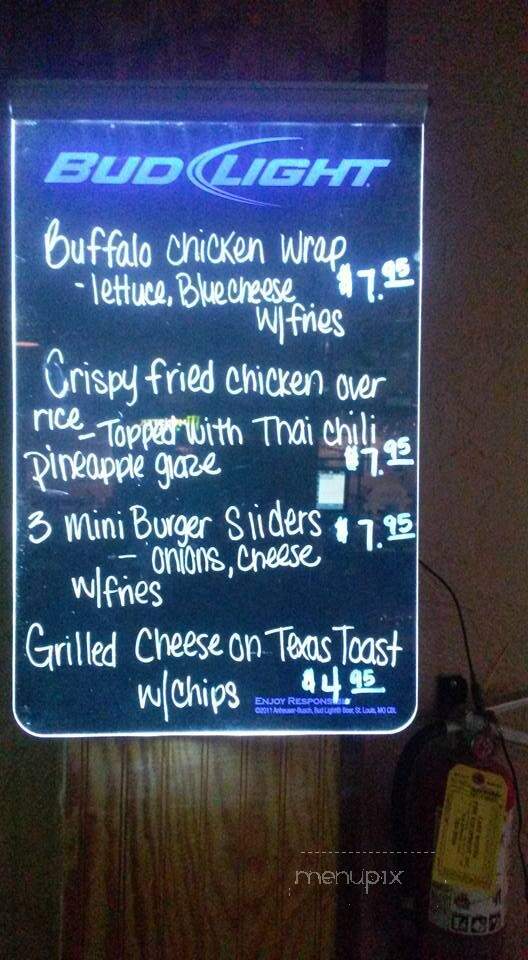 BUD LIGHT
Buffalo chicken wrap
- lettuce, Bluecheese $7.95
w/fries
Crispy fried chicken over
rice - Topped with Thai chili
pineapple glaze $7.95
3 Mini Burger Sliders $7.95
- onions, cheese
w/fries
Grilled Cheese on Texas Toast
w/chips $4.95
ENJOY RESPONSIBLY
©2011 Anheuser-Busch, Bud Light® Beer, St. Louis, MO
menupix